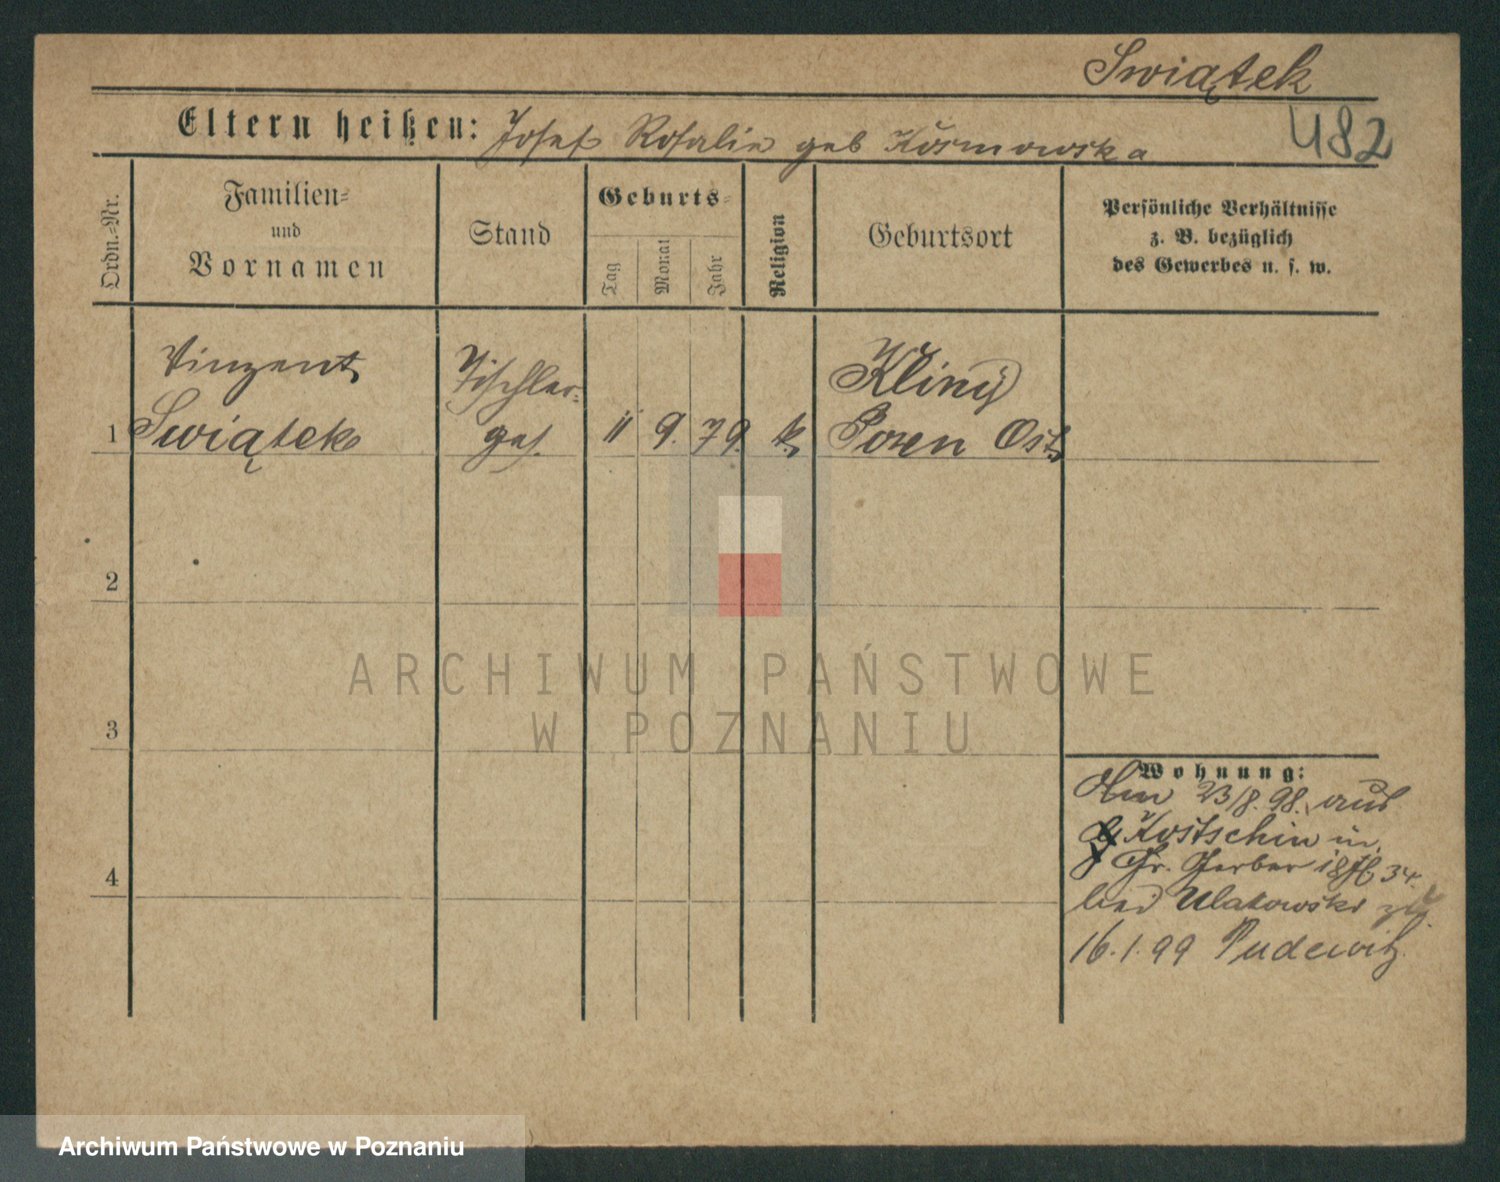 Swiątek
Eltern heißen: Josef Rosalie geb Kosmowska
482
Ordn.=Nr.
Familien=
und
Vornamen
Stand
Geburts=
Tag
Monat
Jahr
Religion
Geburtsort
Persönliche Verhältnisse
z. B. bezüglich
des Gewerbes u. s. w.
Vinzent
Tischler=
Kliny
1 Swiątek ges. 11 9. 79. k. Posen Ost
2
ARCHIWUM PAŃSTWOWE
W POZNANIU
3
Wohnung:
Am 23/8. 98. aus
Kostschin in
Gr. Gerber 34.
bei zu
4
16.1.99 Pudewitz
Archiwum Państwowe w Poznaniu